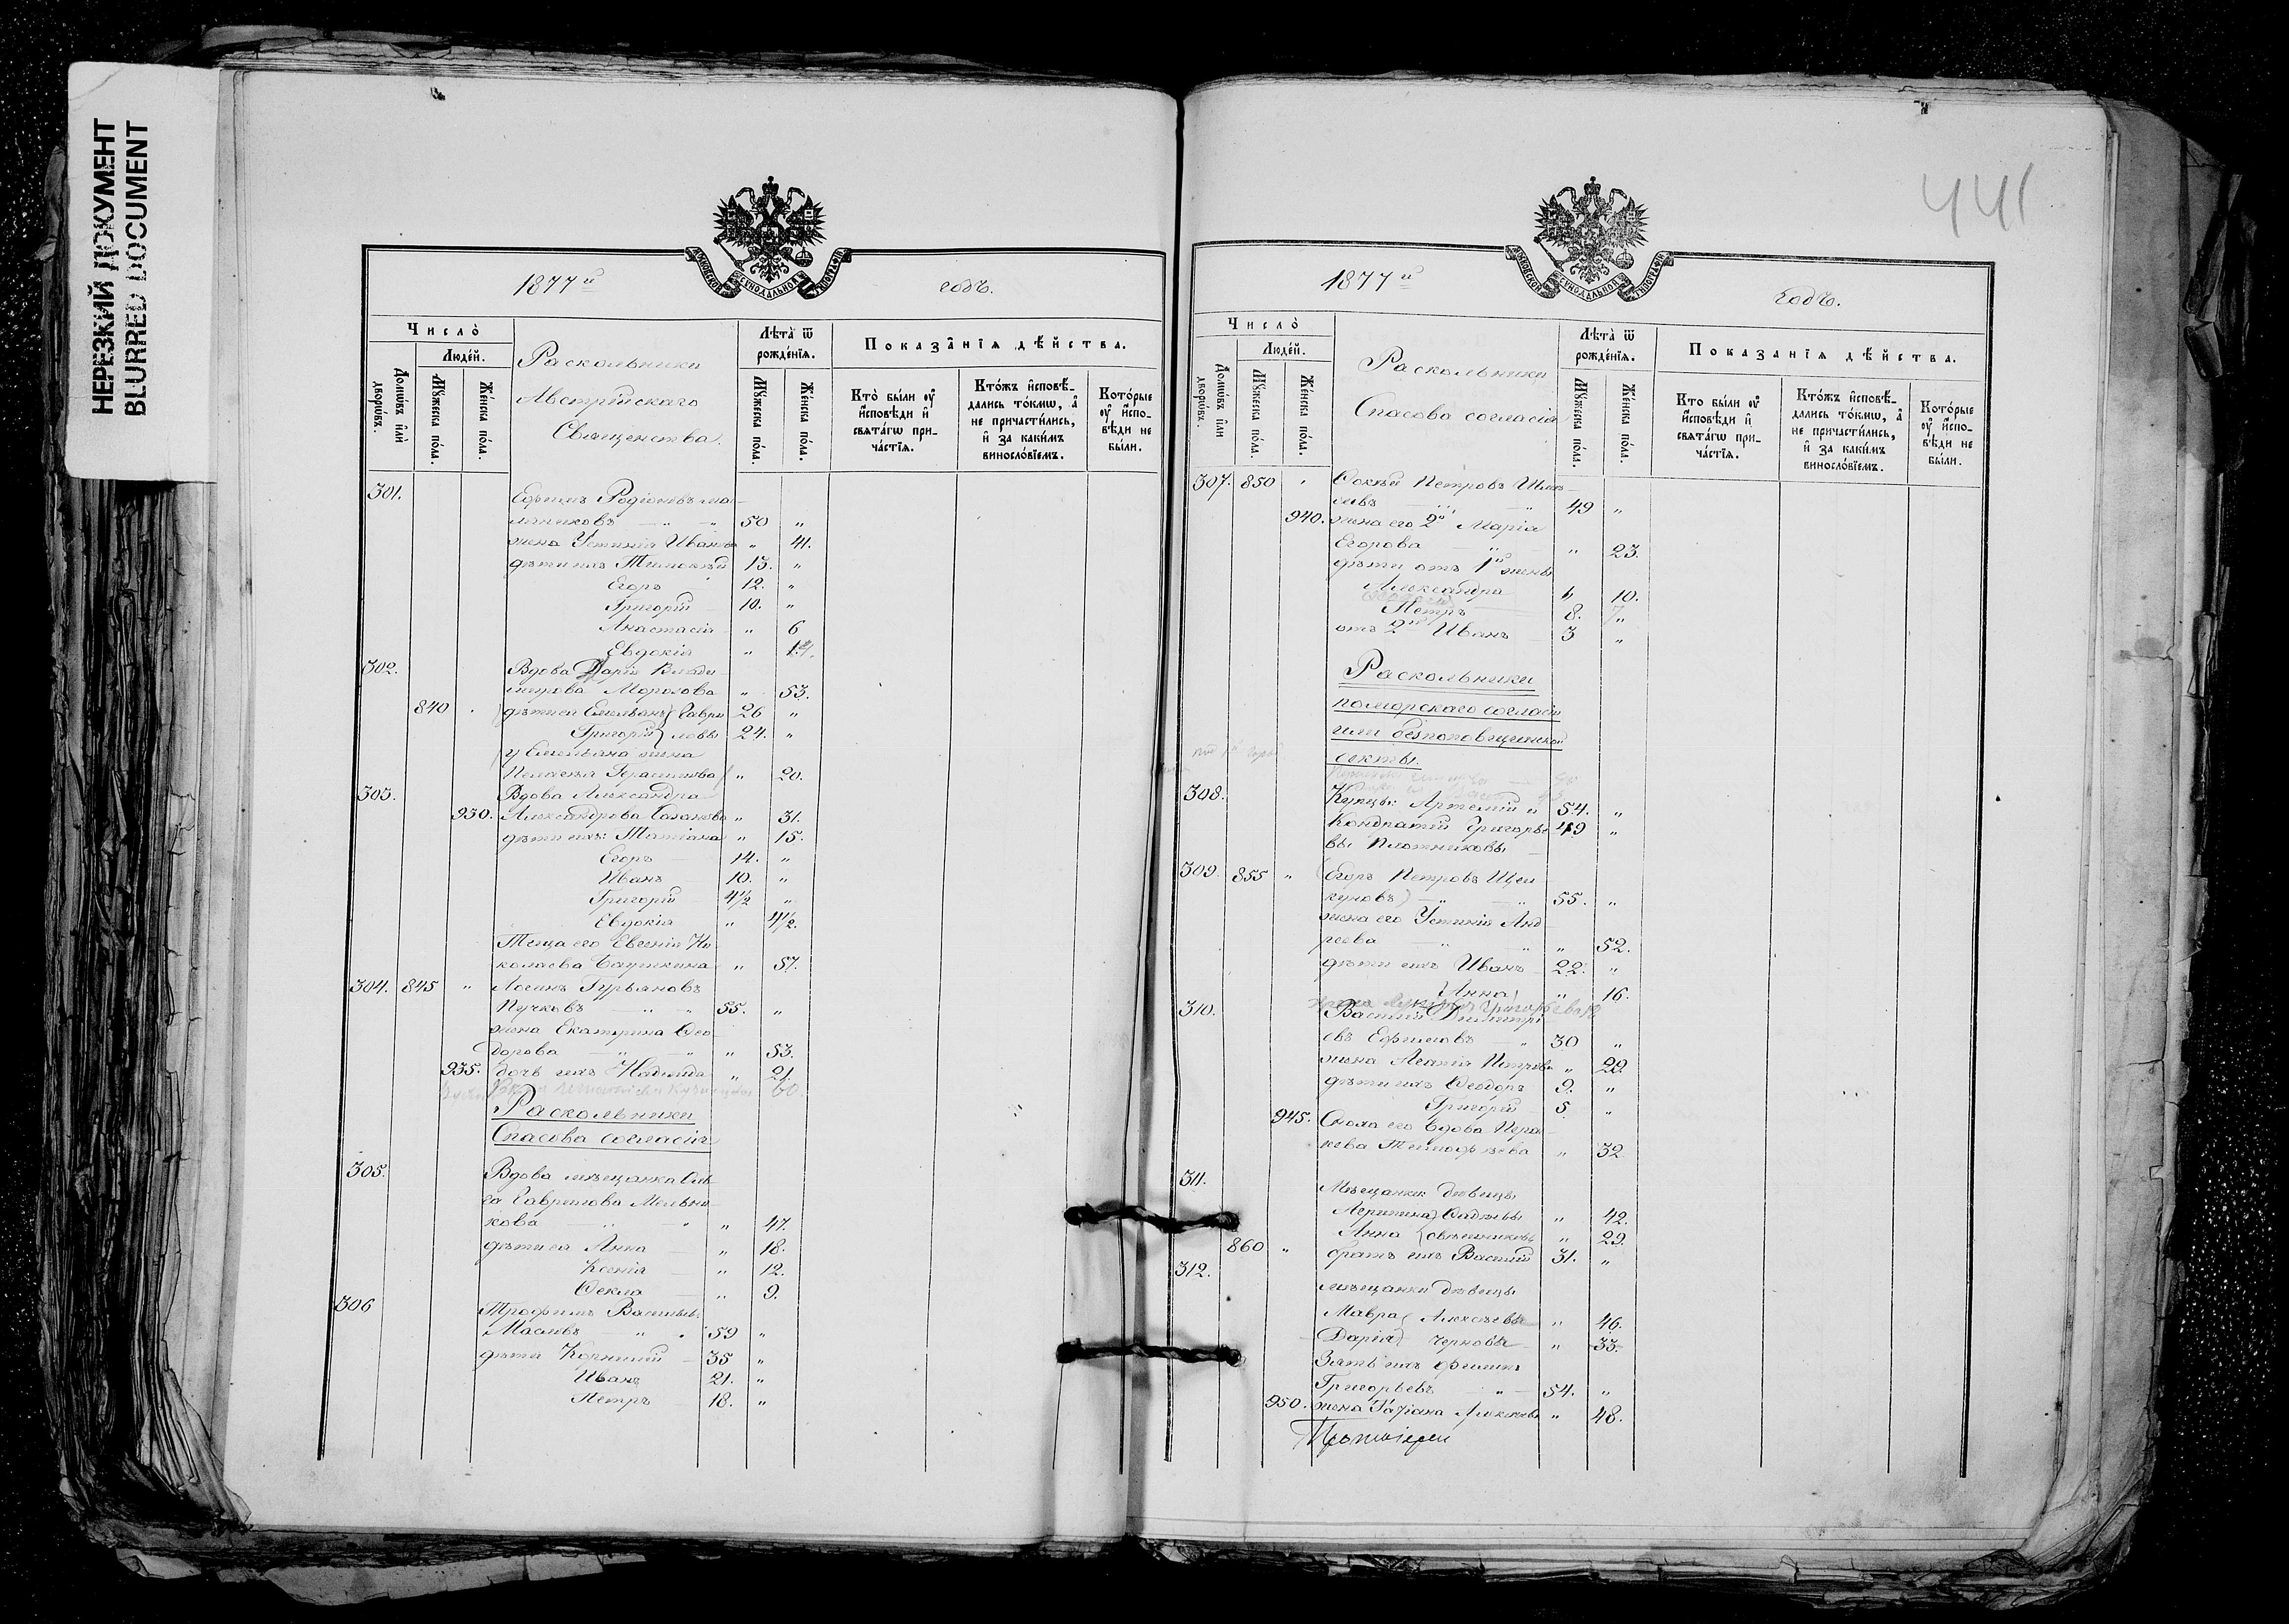 НЕРЕЗКИЙ ДОКУМЕНТ
BLURRED DOCUMENT
1877й годъ.
МОСКОВСКОЙ СѴНОДАЛЬНОЙ ТИПОГРАФІИ
Число̀
Людéй.
Домѡ́въ и҆лѝ дворѡ́въ.
Мꙋ́жеска по́ла.
Же́нска по́ла.
Раскольники
Австрійскаго
Священства.
Лѣ́та ѿ рожде́нїѧ.
Мꙋ́жеска по́ла.
Же́нска по́ла.
Показа̂нїѧ дѣ́йства.
Кто̀ бы́ли ᲂу҆ и҆́сповѣди и҆ свѧта́гѡ причáстїѧ.
Кто́жъ и҆сповѣ́дались то́кмѡ, а҆ не причасти́лись, и҆ за каки́мъ винослóвїемъ.
Кото́рые ᲂу҆ и҆́сповѣди не бы́ли.
301. Ефимъ Родіоновъ
50 "
жена Устинія Иванова " 41.
дѣти ихъ Тимоѳей 13. "
Егоръ 12. "
Григорій 10. "
Анастасія " 6
Евдокія "
302. Вдова Дарія Влади
мірова Морозова " 53.
840 дѣти ея Емельянъ Гаври 26 "
Григорій ловы 24. "
у Емельяна жена
Пелагія Герасимова " 20.
303. Вдова Александра
930. Александрова " 31.
дѣти ихъ: Татіана " 15.
Егоръ 14. "
Иванъ 10. "
Григорій 4½ "
Евдокія "
Теща его Евгенія Ни
колаева " 57.
304. 845 " Логинъ Гурьяновъ
Пучковъ 55. "
жена Екатерина Ѳео
дорова " 53.
935. дочь ихъ Надежда " 21.
60.
Раскольники
Спасова согласія
305. Вдова мѣщанка
Гаврилова Мельни
кова " 47.
дѣти ея Анна " 18.
Ксенія " 12.
Ѳекла " 9.
306 Трофимъ Васильевъ
Масловъ 59 "
дѣти Корнилій 35 "
Иванъ 21. "
Петръ 18. "
441
1877й годъ.
МОСКОВСКОЙ СѴНОДАЛЬНОЙ ТИПОГРАФІИ
Число̀
Людéй.
Домѡ́въ и҆лѝ дворѡ́въ.
Мꙋ́жеска по́ла.
Же́нска по́ла.
Раскольники
Спасова согласія
Лѣ́та ѿ рожде́нїѧ.
Мꙋ́жеска по́ла.
Же́нска по́ла.
Показа̂нїѧ дѣ́йства.
Кто бы́ли ᲂу҆ и҆́сповѣди и҆ свѧта́гѡ причáстїѧ.
Кто́жъ и҆сповѣ́дались то́кмѡ, а҆ не причасти́лись, и҆ за каки́мъ винослóвїемъ.
Кото́рые ᲂу҆ и҆́сповѣди не бы́ли.
307. 850 Фокѣй Петровъ
49 "
940. жена его 2я Марія
Егорова " 23.
дѣти отъ 1й жены
Александра " 10.
Петръ 8. "
отъ 2й Иванъ 3 "
Раскольники
поморскаго согласія
или безпоповщинской
секты.
308. Купцы: Артемій 54. "
Кондратій Григорье 49 "
вы Плотниковы
309. 855 " Егоръ Петровъ
55. "
жена его Устинія Анд
реева " 52.
дѣти ихъ Иванъ 22. "
Анна " 16.
310. Василій Димитрі
евъ Ефимовъ 30 "
жена Агапія Петрова " 29.
дѣти ихъ Ѳеодоръ 9. "
Григорій 5 "
945. Сноха его вдова
Тимофѣева " 32.
311. Мѣщанки дѣвицы
Агрипина Фадѣевы " 42.
Анна " 29.
860 " братъ ихъ Василій 31. "
312. мѣщанки дѣвицы
Мавра Алексѣевы " 46.
Дарія Черновы " 33.
Зять ихъ Филипъ
Григорьевъ 54. "
950. жена Татіана Алексѣева " 48.
Протоіерей